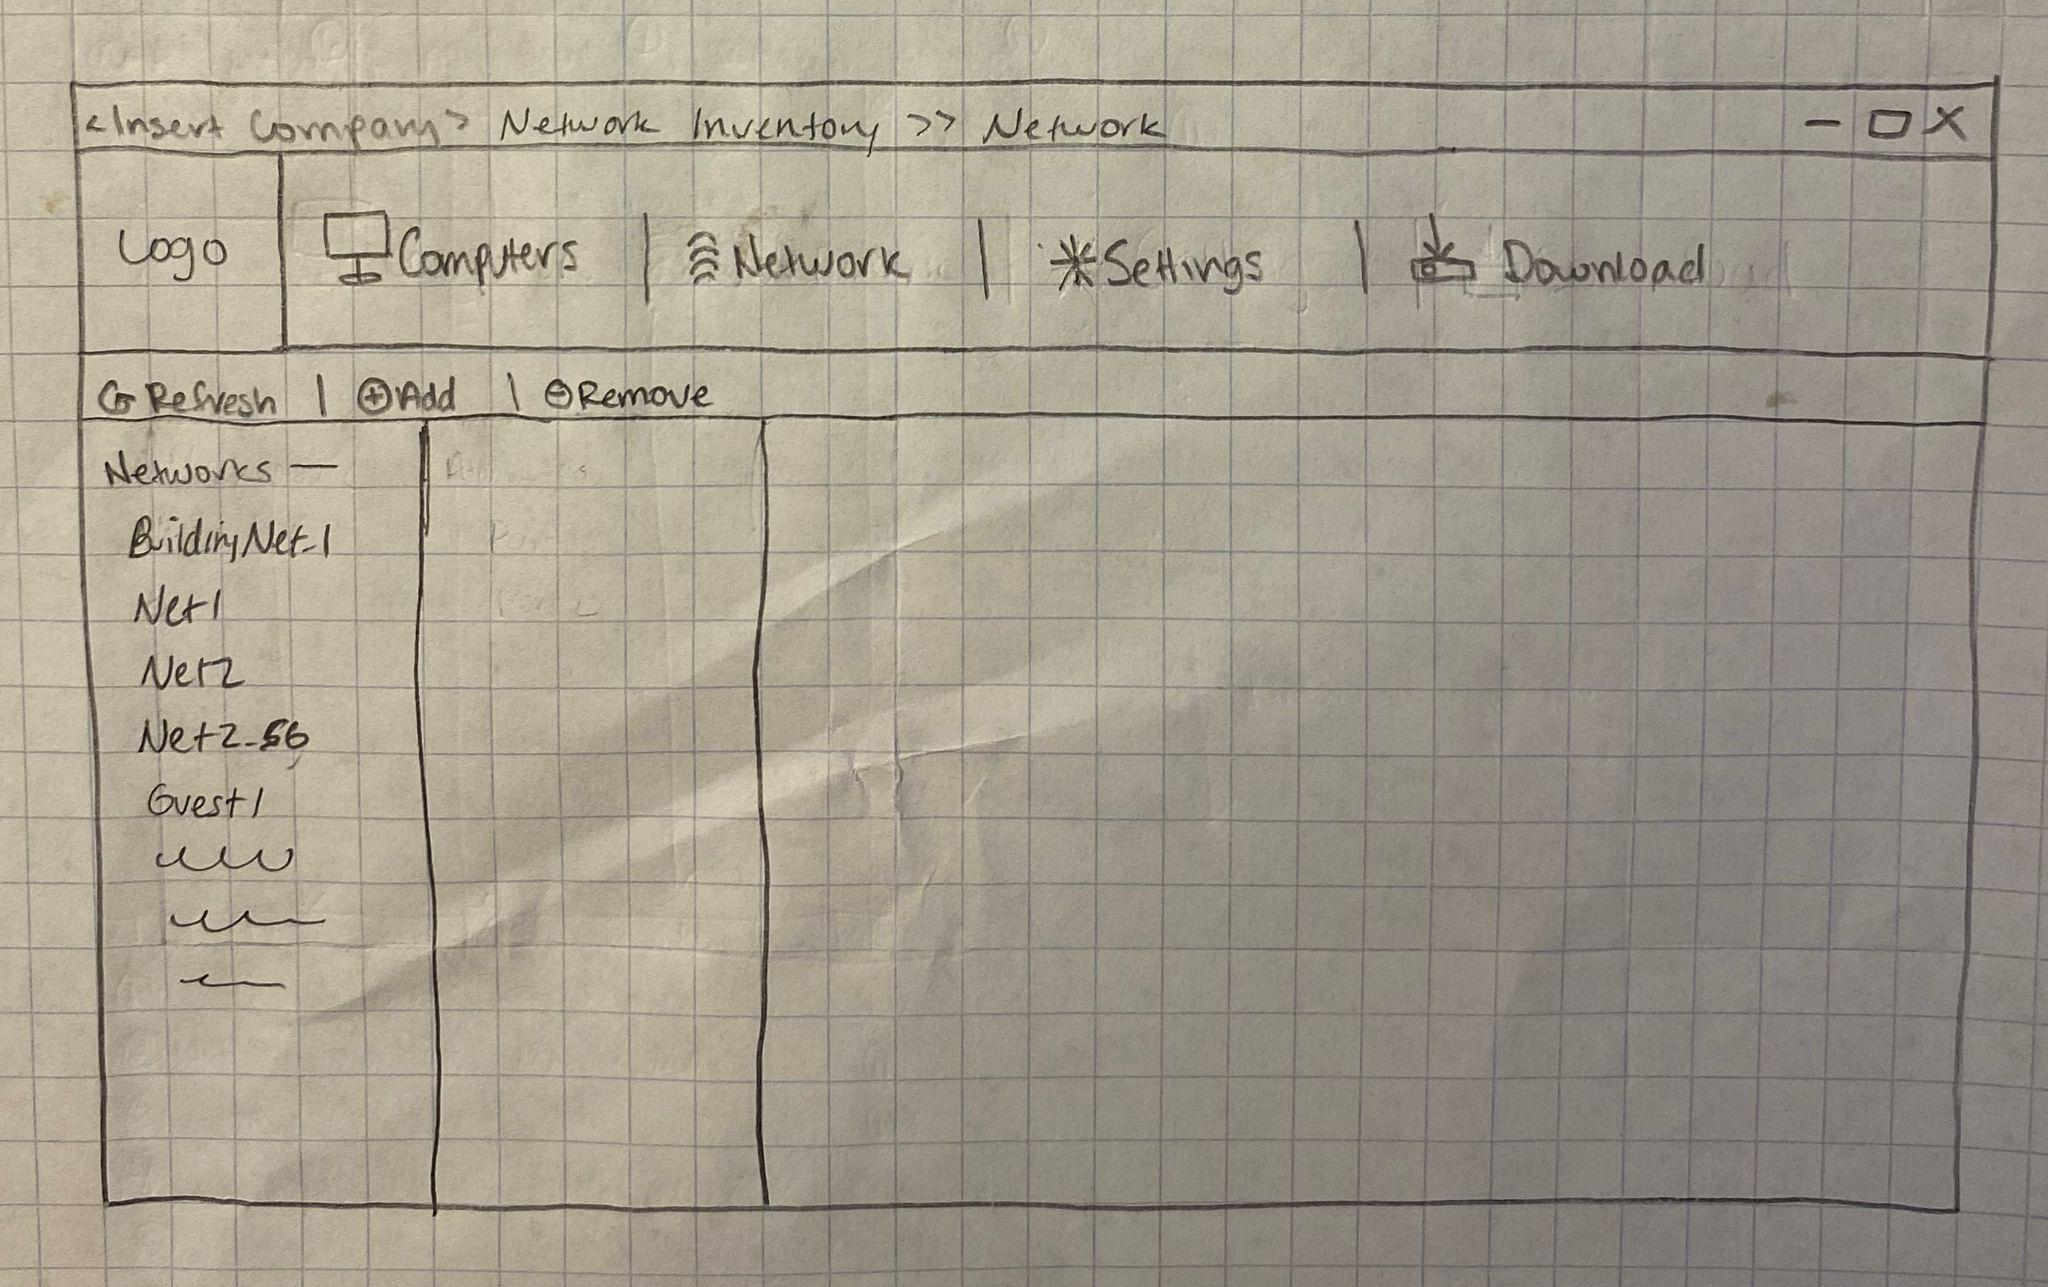 <Insert Company> Network Inventory >> Network
Logo
Computers | Network | Settings | Download
Refresh | Add | Remove
Networks —
BuildingNet_1
Net1
Net2
Net2_56
Guest1